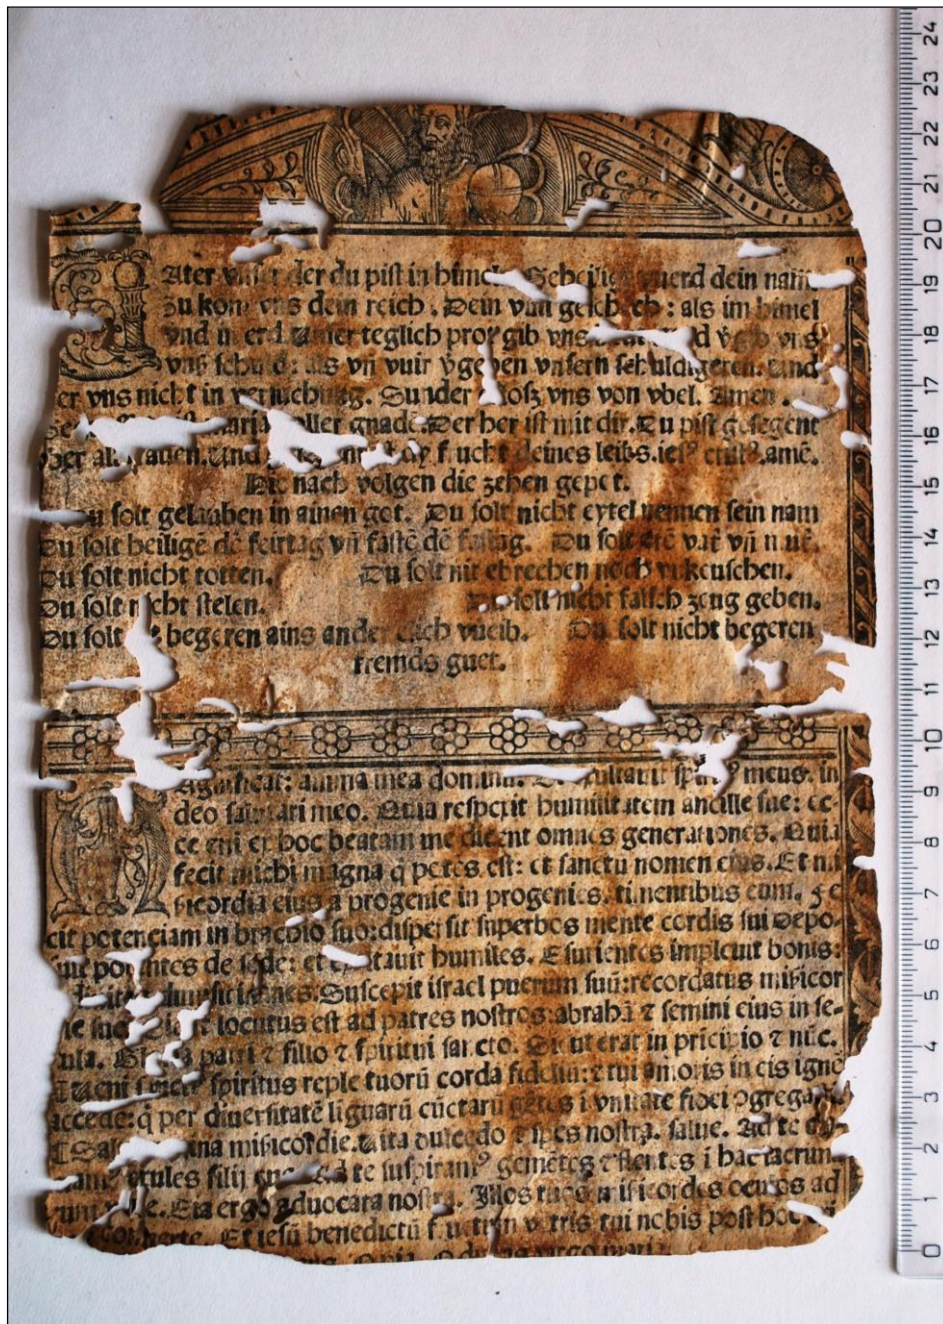 Ater vnser der du pist in himel Geheilig werd dein nam
zu kom vns dein reich. Dein vuil geschech: als im himel
vnd in erd Unser teglich prot gib vns vñ vñs
vnß schuld: als vñ vuir v̊geben vnsern schuldigeren. Und
er vns nicht in versuchung. Sunder losz vns von vbel. Amen.
maria voller gnade. Der her ist mit dir. Du pist gesegent
frauen. Und dy frucht deines leibs. ies⁹ crist⁹. amē.
Hie nach volgen die zehen gepot.
Du solt gelauben in ainen got. Du solt nicht eytel nennen sein nam
Du solt heiligē dē feirtag vñ fastē dē fastag. Du solt vat̄ vñ mut̄.
Du solt nicht totten. Du solt nit ebrechen noch vnkeuschen.
Du solt nicht stelen. Du solt nicht falsch zeug geben.
Du solt begeren ains ander elich vueib. Du solt nicht begeren
fremds guet.
Agnificat: anima mea dominū. Et exultauit spūs meus. in
deo salutari meo. Quia respexit humilitatem ancille sue: ec-
ce eni ex hoc beatam me dicent omnes generationes. Quia
fecit michi magna q̄ potēs est: et sanctū nomen eius. Et mi
sicordia eius a progenie in progenies. timentibus eum. Fe
cit potenciam in brachio suo: dispersit superbos mente cordis sui Depo-
uit potentes de sede: et exaltauit humiles. Esurientes impleuit bonis:
diuites dimisit inanes. Suscepit israel puerum suū: recordatus misicor
die sue. Sicut locutus est ad patres nostros: abrahā ⁊ semini eius in se-
cula. Gloria patri ⁊ filio ⁊ spiritui sancto. Sicut erat in pricipio ⁊ nūc.
Ueni sancte spiritus reple tuorū corda fideliū: ⁊ tui amoris in eis ignē
accede: q̄ per diuersitatē liguarū cūctarū gētes i vnitate fidei ꝯgregasti
Salue regina misicordie. Uita dulcedo ⁊ spes nostra. salue. Ad te cla-
mam⁹ exules filij eue. Ad te suspiram⁹ gemētes ⁊ flentes i hac lacrim
valle. Eia ergo aduocata nostra. Illos tuos misericordes oculos ad
nos conuerte. Et iesū benedictū fructum vētris tui nobis post hoc
O pia. O virgo mari